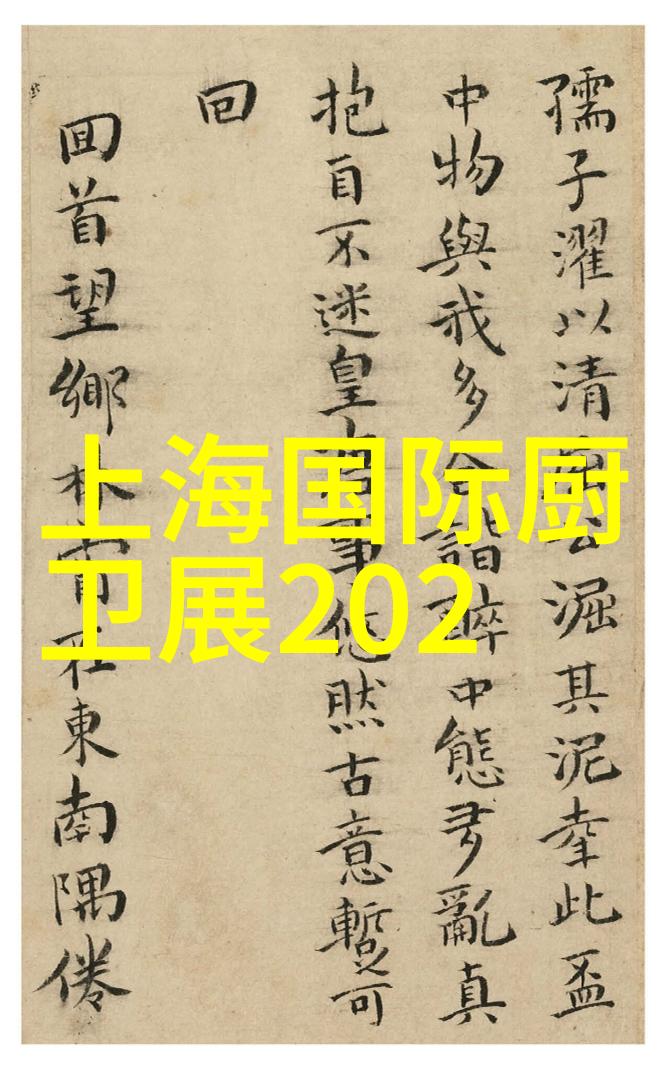 孺子濯以清淈其泥幸此盃
中物與我多合諧醉中態多亂真
抱自不迷皇事悠然古意暫可
回
回首望鄉林在東南隅倦
上海国际厨
卫展202